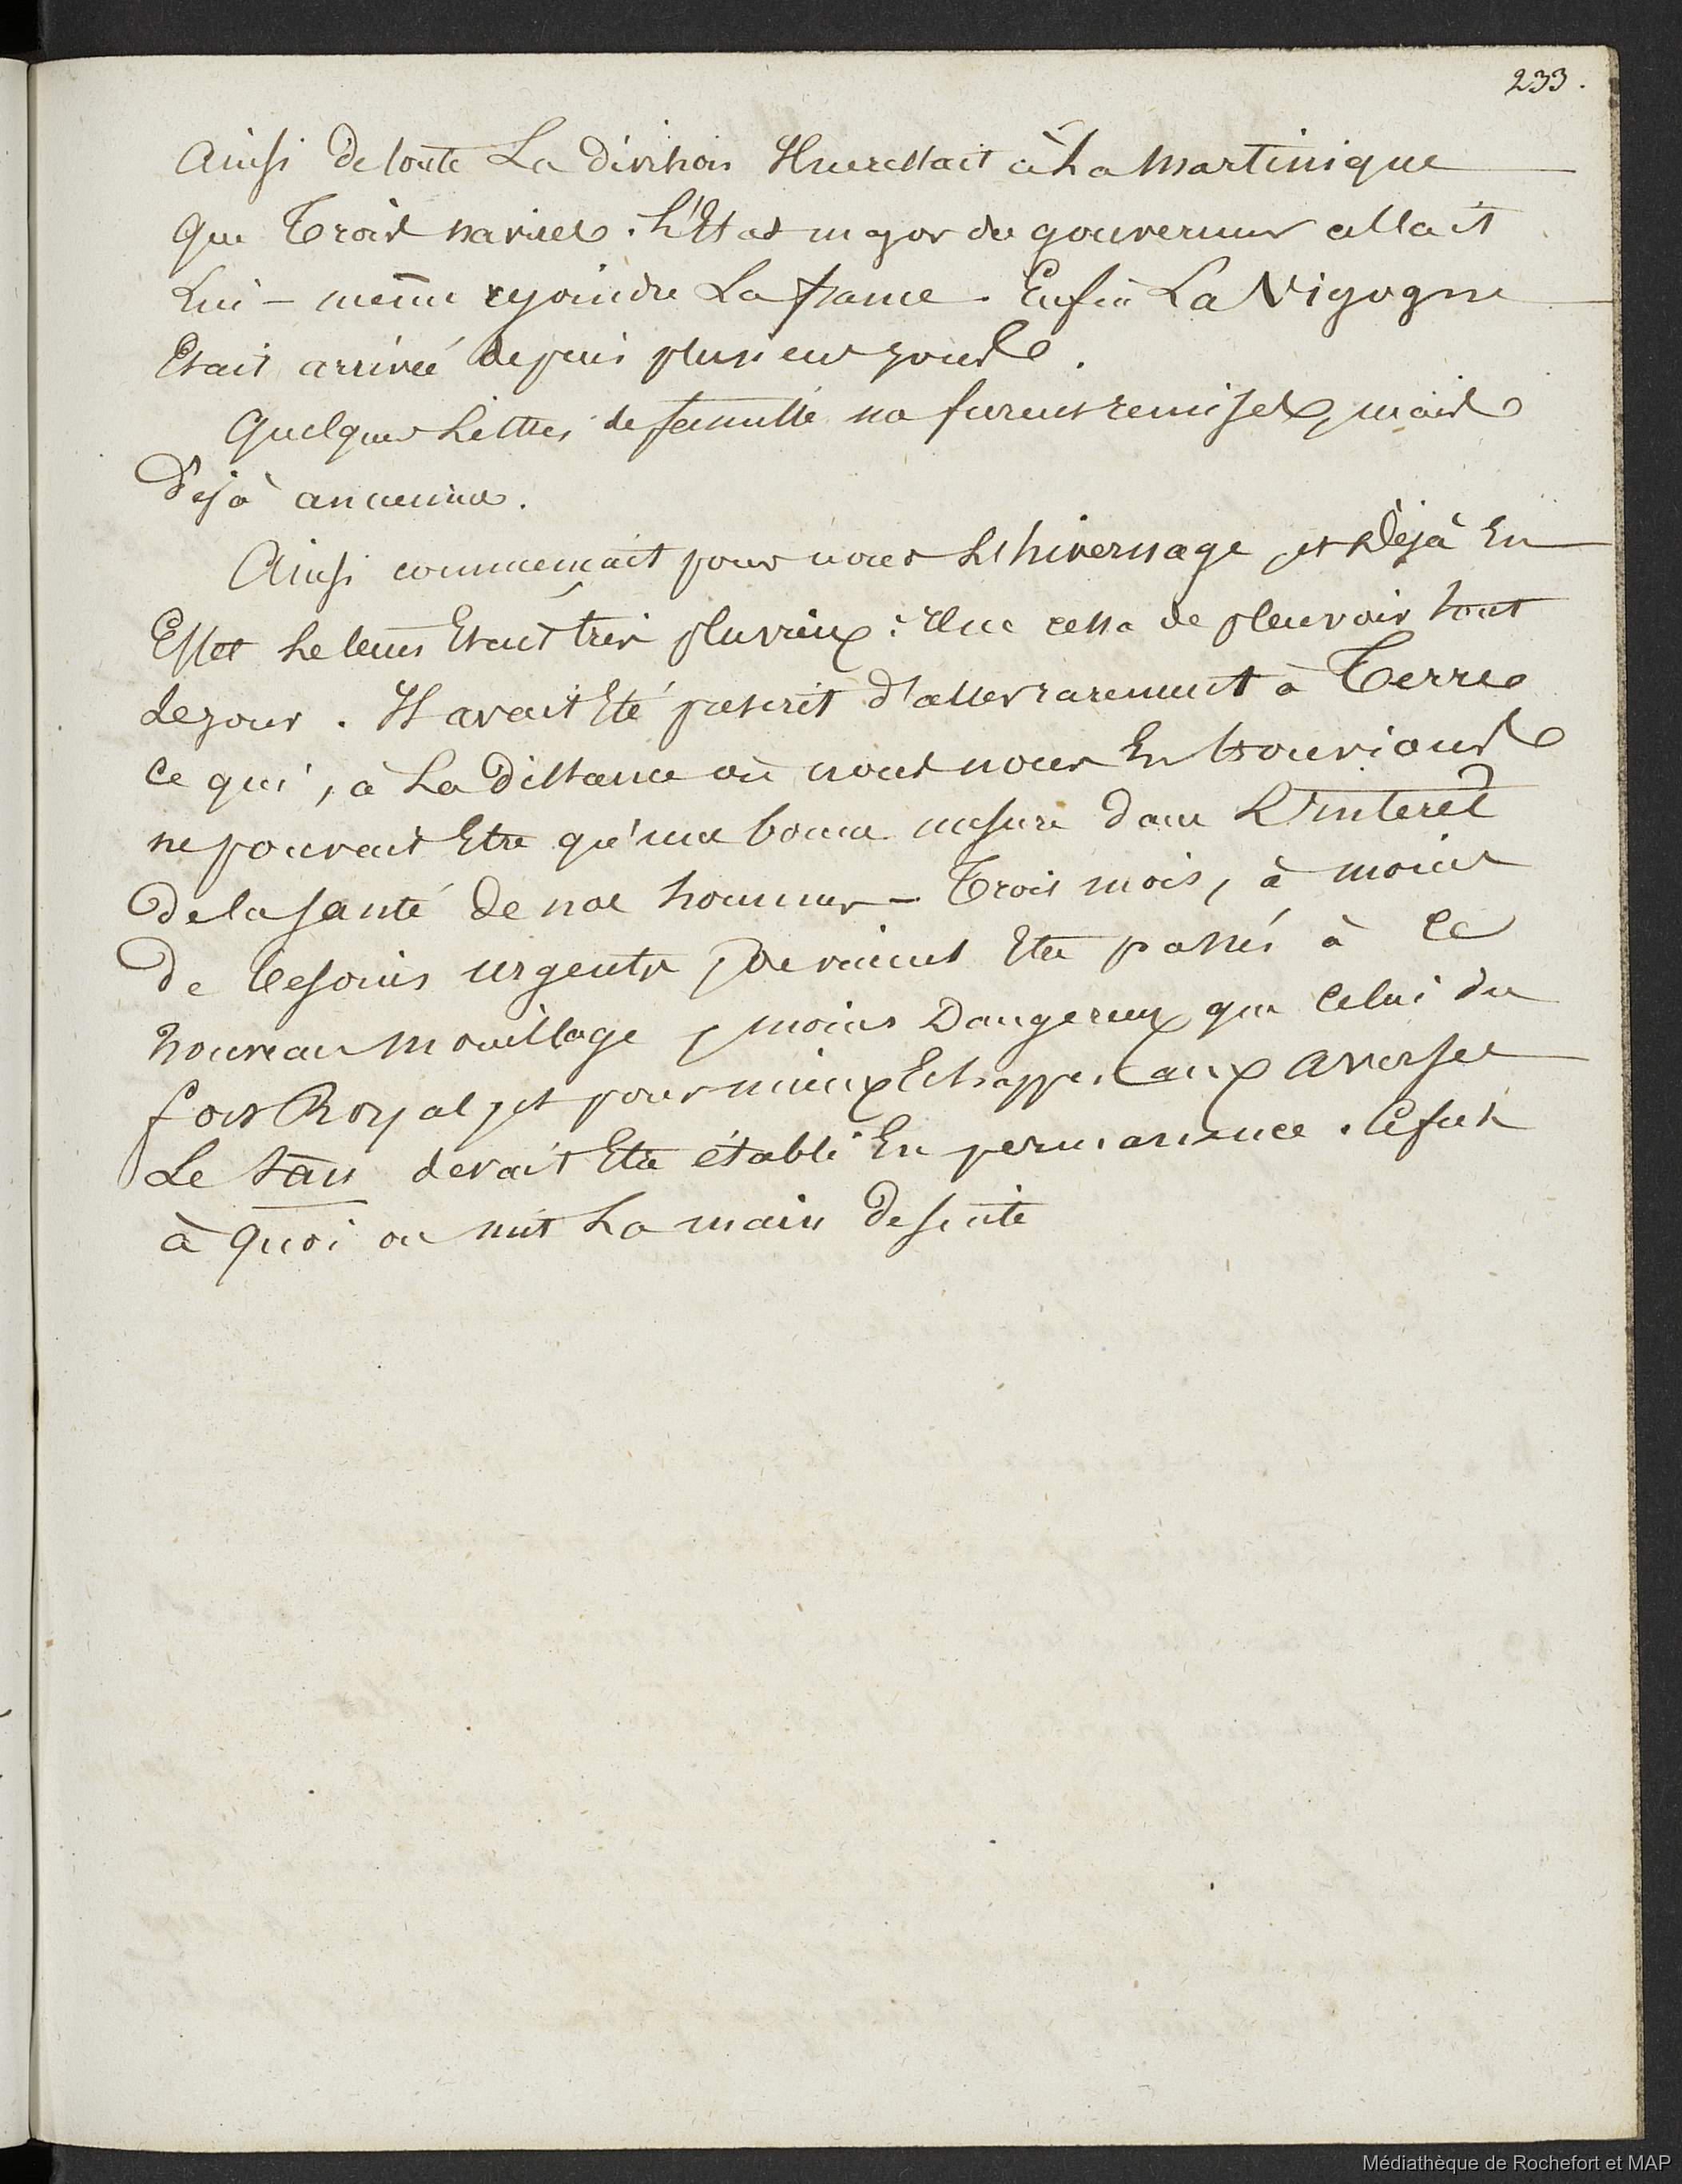 233.
Ainsi de toute La division Il ne restait à La Martinique
que Trois navires. L'Etat major du gouverneur allait
Lui-même rejoindre La france. Enfin La Vigogne
Etait arrivée depuis plusieurs jours.
Quelques Lettres de famille furent remises, mais
Déjà anciennes.
Ainsi commençait pour nous L'hivernage, et Déjà En
Effet Le tems Etait très pluvieux : Il ne cessa de pleuvoir tout
Le jour. Il avait Eté prescrit d'aller rarement à Terre
ce qui, à La Distance où nous nous En trouvions
ne pouvait Etre qu'une bonne mesure dans L'interet
De la santé De nos hommes - Trois mois, à moins
De besoins urgents, devaient Etre passés à ce
nouveau mouillage, moins Dangereux que Celui du
fort Royal, et pour mieux Echapper aux averses
Le taus devait Etre établi En permanence. Ce fut
à quoi on mit La main De suite
Médiathèque de Rochefort et MAP